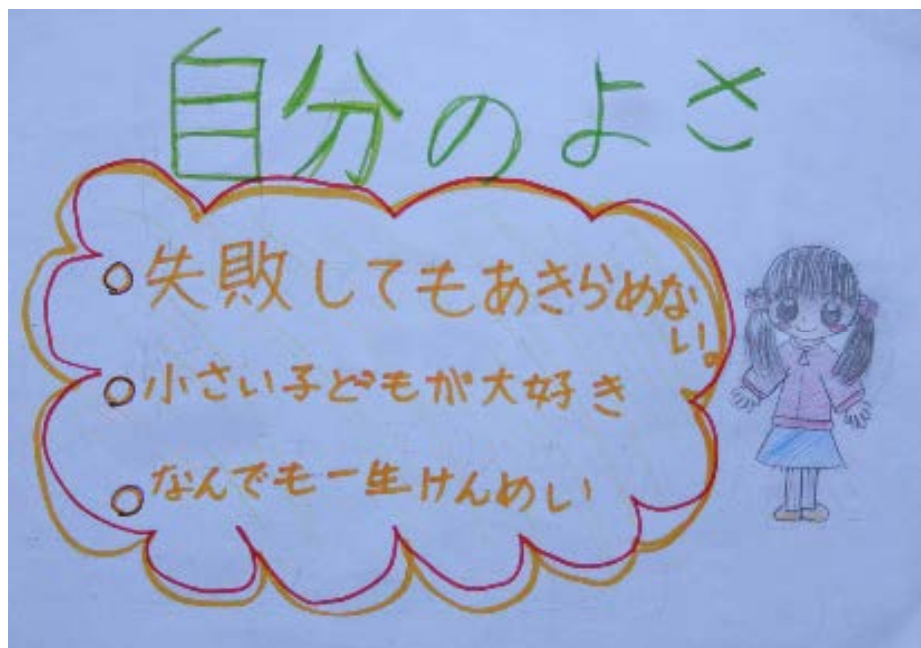 自分のよさ
○失敗してもあきらめない。
○小さい子どもが大好き
○なんでも一生けんめい